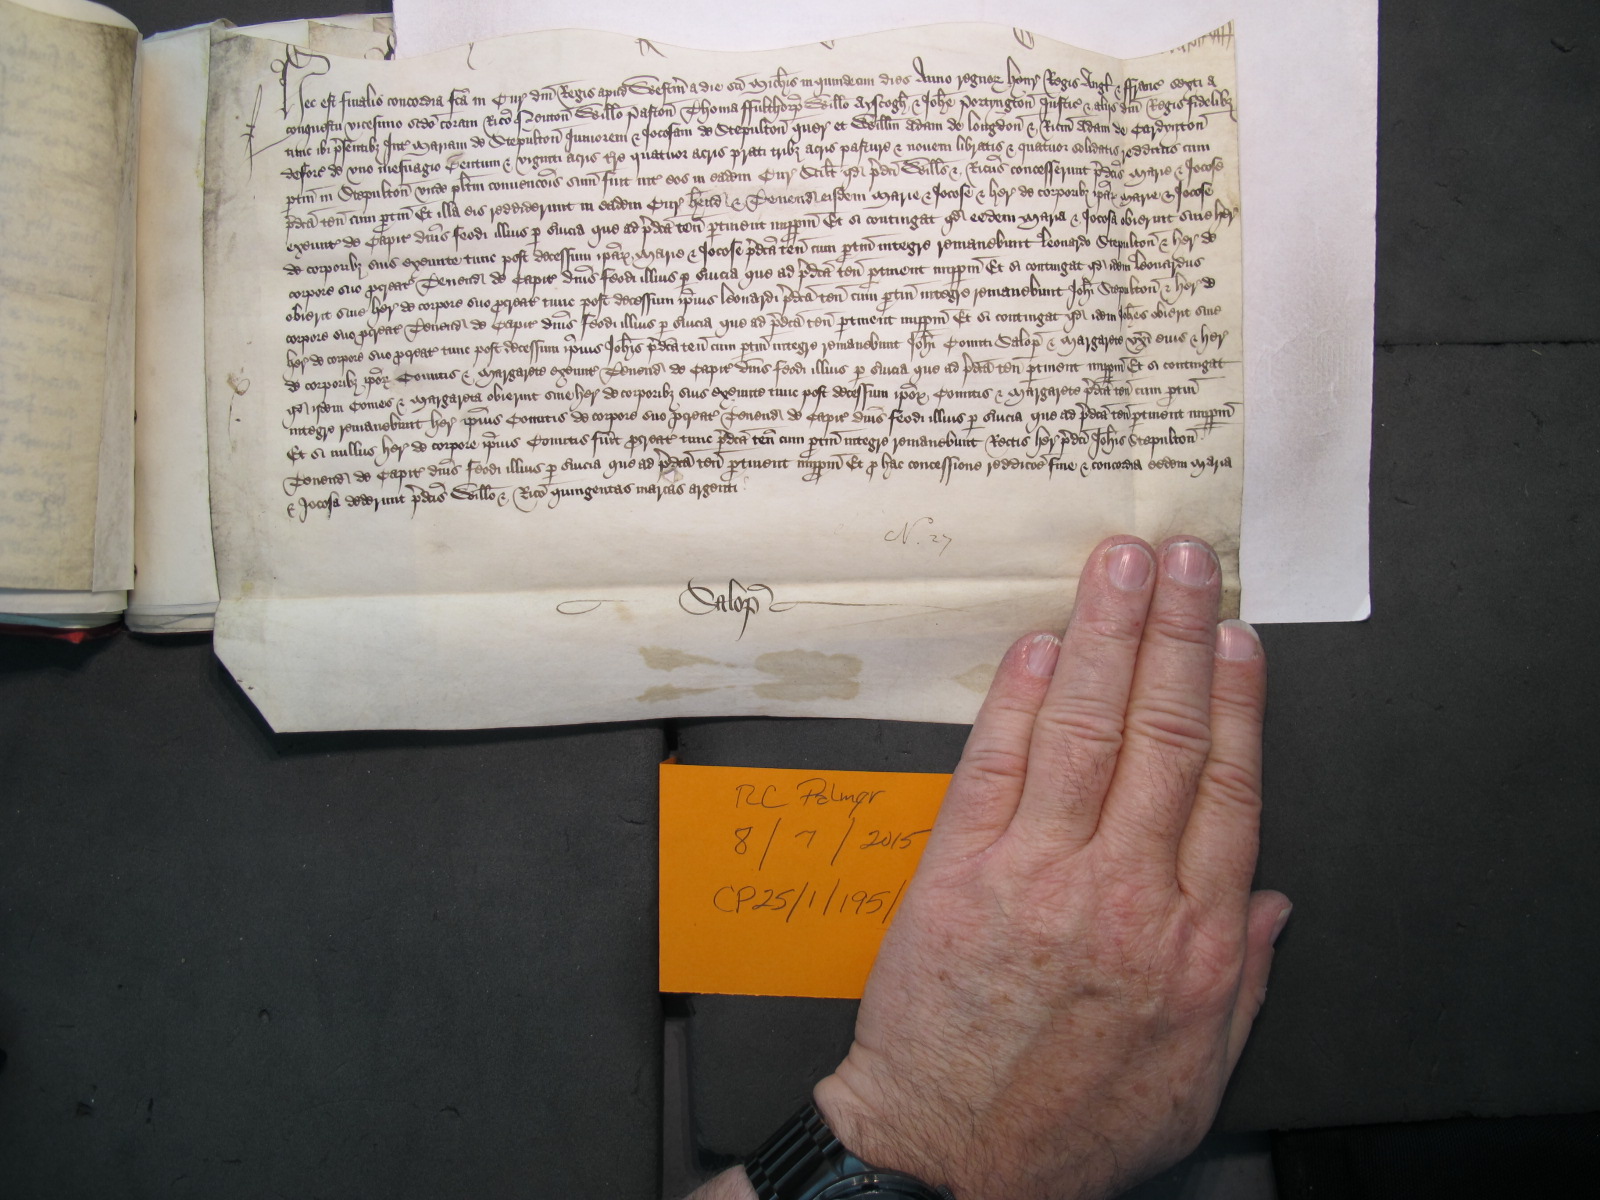 Hec est finalis concordia fca in Cur dni Regis apud Westm a die sci Michis in quindecim dies Anno regnor Henr Regis Angl & ffranc sexti a
conquestu vicesimo scdo coram Rico Neuton Willo Paston Thoma ffulthorp Willo Ayscogh & Johe Portyngton Justic & alijs dni Regis fidelibz
tunc ibi psentibz Int Mariam de Stepulton Juniorem & Jocosam de Stepulton quer et Willm Adam de longdon & Ricm Adam de Cardyngton
defore de vno mesuagio Centum & viginti acris tre quatuor acris prati tribz acris pasture & nouem libratis & quatuor solidatis redditus cum
ptin in Stepulton vnde plitm conuencois sum fuit int eos in eadem Cur Scilt qd pdci Wills & Ricus concesserunt pdcis Marie & Jocose
pdca ten cum ptin Et illa eis reddiderunt in eadem Cur Hend & Tenend eisdem Marie & Jocose & her de corporibz ipar Marie & Jocose
exeunt de Capit dnis feodi illius p seruicia que ad pdca ten ptinent imppm Et si contingat qd eedem Maria & Jocosa obierint sine her
de corporibz suis exeunte tunc post decessum ipar Marie & Jocose pdca ten cum ptin integre remanebunt Leonardo Stepulton & her de
corpore suo pcreat Tenend de Capit dnis feodi illius p seruicia que ad pdca ten ptinent imppm Et si contingat qd idem Leonardus
obierit sine her de corpore suo pcreat tunc post decessum ipius Leonardi pdca ten cum ptin integre remanebunt Johi Stepulton & her de
corpore suo pcreat Tenend de Capit dnis feodi illius p seruicia que ad pdca ten ptinent imppm Et si contingat qd idem Johes obierit sine
her de corpore suo pcreat tunc post decessum ipius Johis pdca ten cum ptin integre remanebunt Johi Comiti Salop & Margarete vxi eius & her
de corporibz ipor Comitis & Margarete exeunt Tenend de Capit dnis feodi illius p seruicia que ad pdca ten ptinent imppm Et si contingat
qd idem Comes & Margareta obierint sine her de corporibz suis exeunte tunc post decessum ipor Comitis & Margarete pdca ten cum ptin
integre remanebunt her ipius Comitis de corpore suo pcreat Tenend de Capit dnis feodi illius p seruicia que ad pdca ten ptinent imppm
Et si nullus her de corpore ipius Comitis fuit pcreat tunc pdca ten cum ptin integre remanebunt Rectis her pdci Johis Stepulton
Tenend de Capit dnis feodi illius p seruicia que ad pdca ten ptinent imppm Et p hac concessione reddicoe fine & concordia eedem Maria
& Jocosa dederunt pdcis Willo & Rico quingentas marcas argenti
N. 27
Salop
RC Palmer
8/7/2015
CP25/1/195/